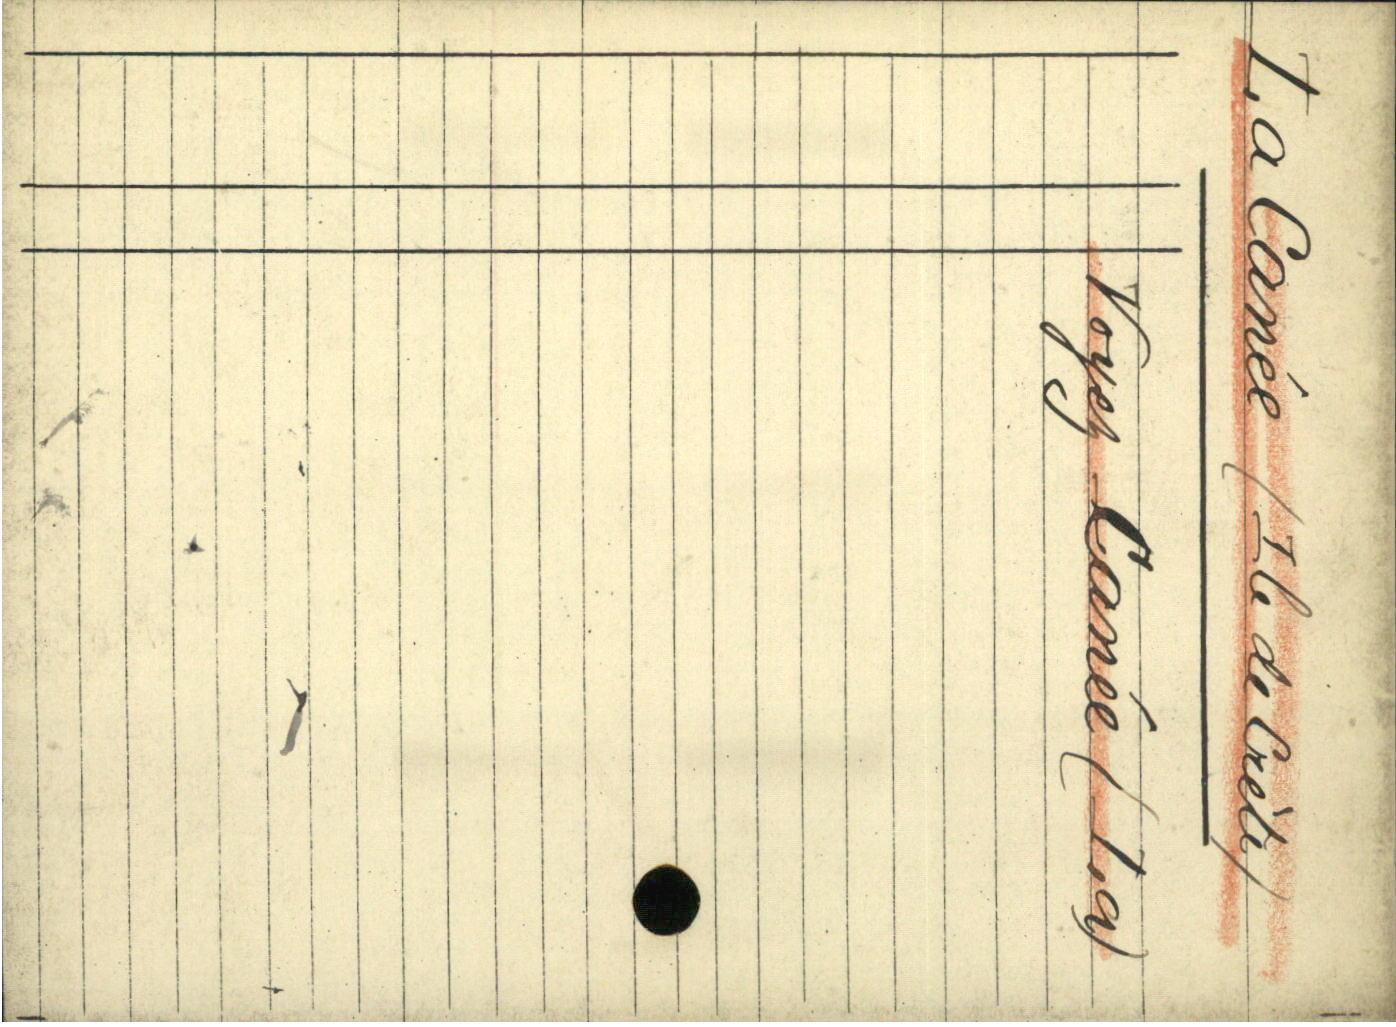 La Canée (Ile de Crète)
Voyez Canée (La)